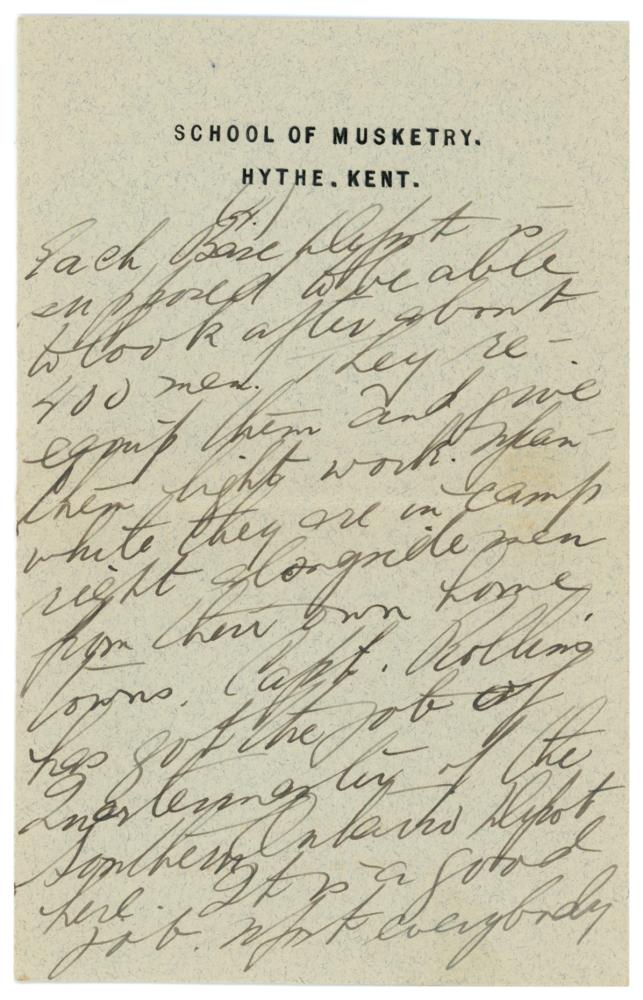 SCHOOL OF MUSKETRY.
HYTHE. KENT.
Each Base Depot is
supposed to be able
to look after about
400 men. They re-
equip them and give
them light work.
while they are in camp
right alongside men
from their own home
towns. Capt. Rollins
has got the job of
Quartermaster of the
Southern Ontario Depot
here. It is a good
job. Most everybody